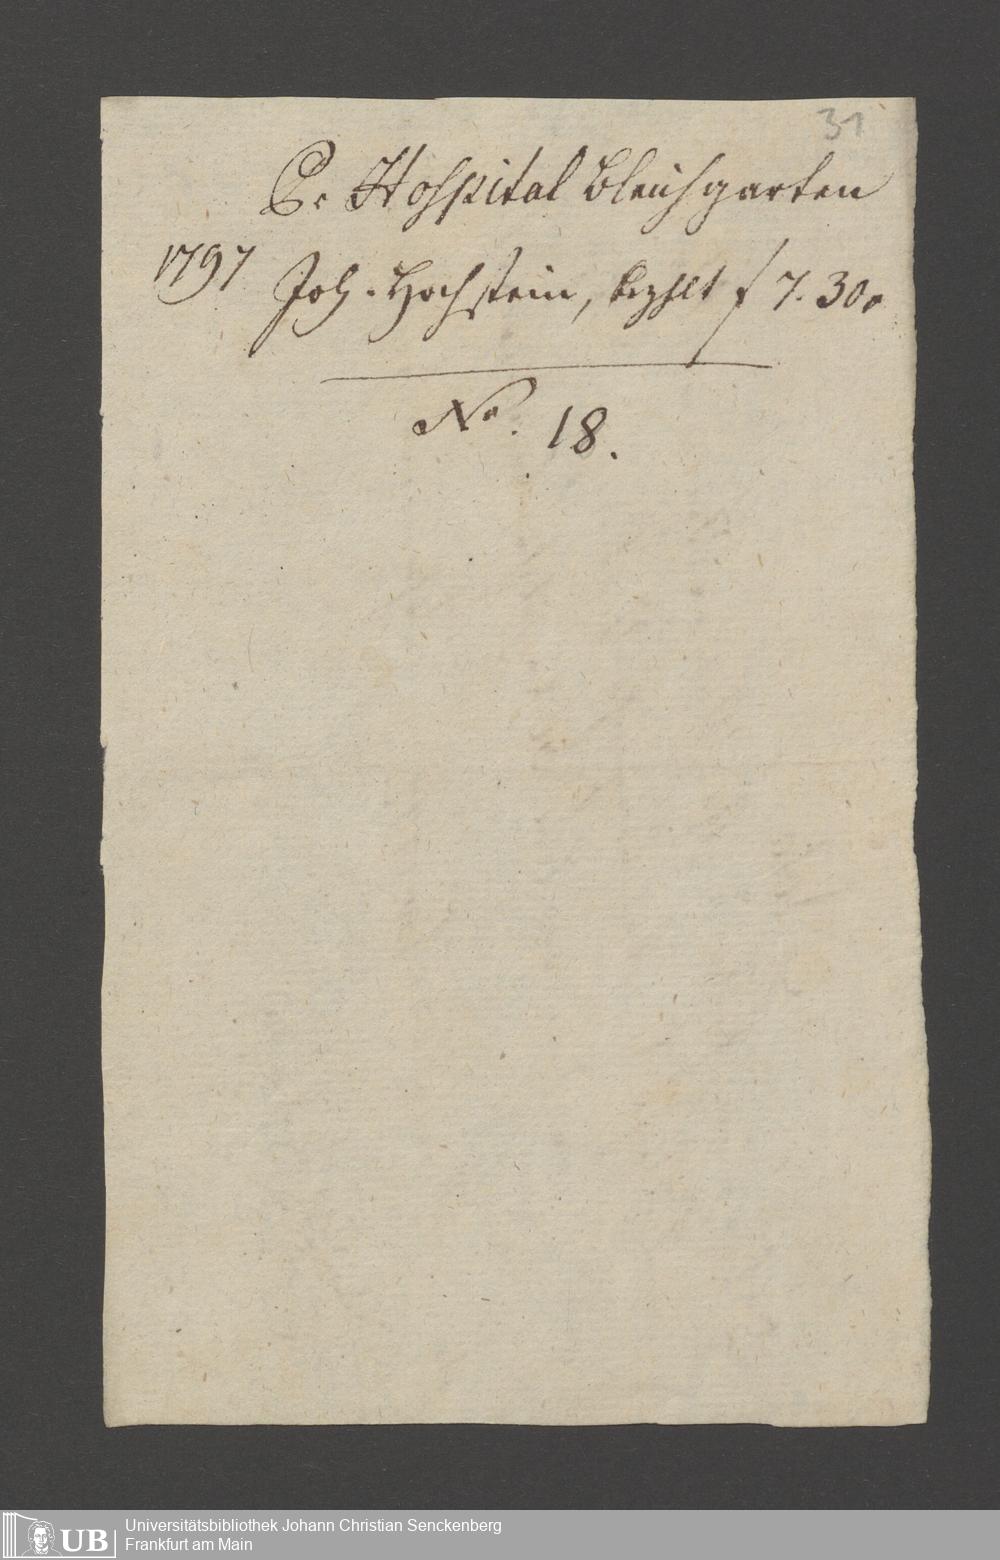 31
Pr Hospital Bleichgarten
1797 Joh. Hochstein, bezhlt f 7. 30.
No. 18.
UB Universitätsbibliothek Johann Christian Senckenberg
Frankfurt am Main